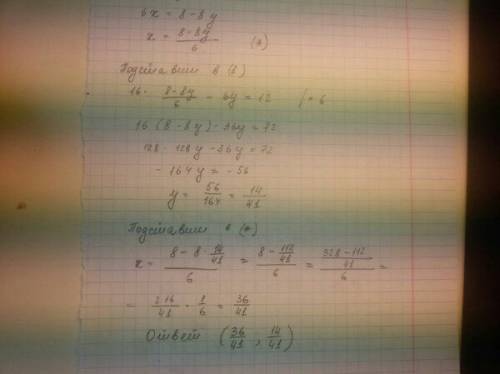 6x = 8 - 8y
x = (8 - 8y)/6 (*)
Подставим в (1)
16 · (8 - 8y)/6 - 6y = 12 / · 6
16 (8 - 8y) - 36y = 72
128 - 128y - 36y = 72
- 164y = - 56
y = 56/164 = 14/41
Подставим в (*)
x = (8 - 8 · 14/41)/6 = (8 - 112/41)/6 = ((328 - 112)/41)/6 =
= 216/41 · 1/6 = 36/41
Ответ (36/41 ; 14/41)